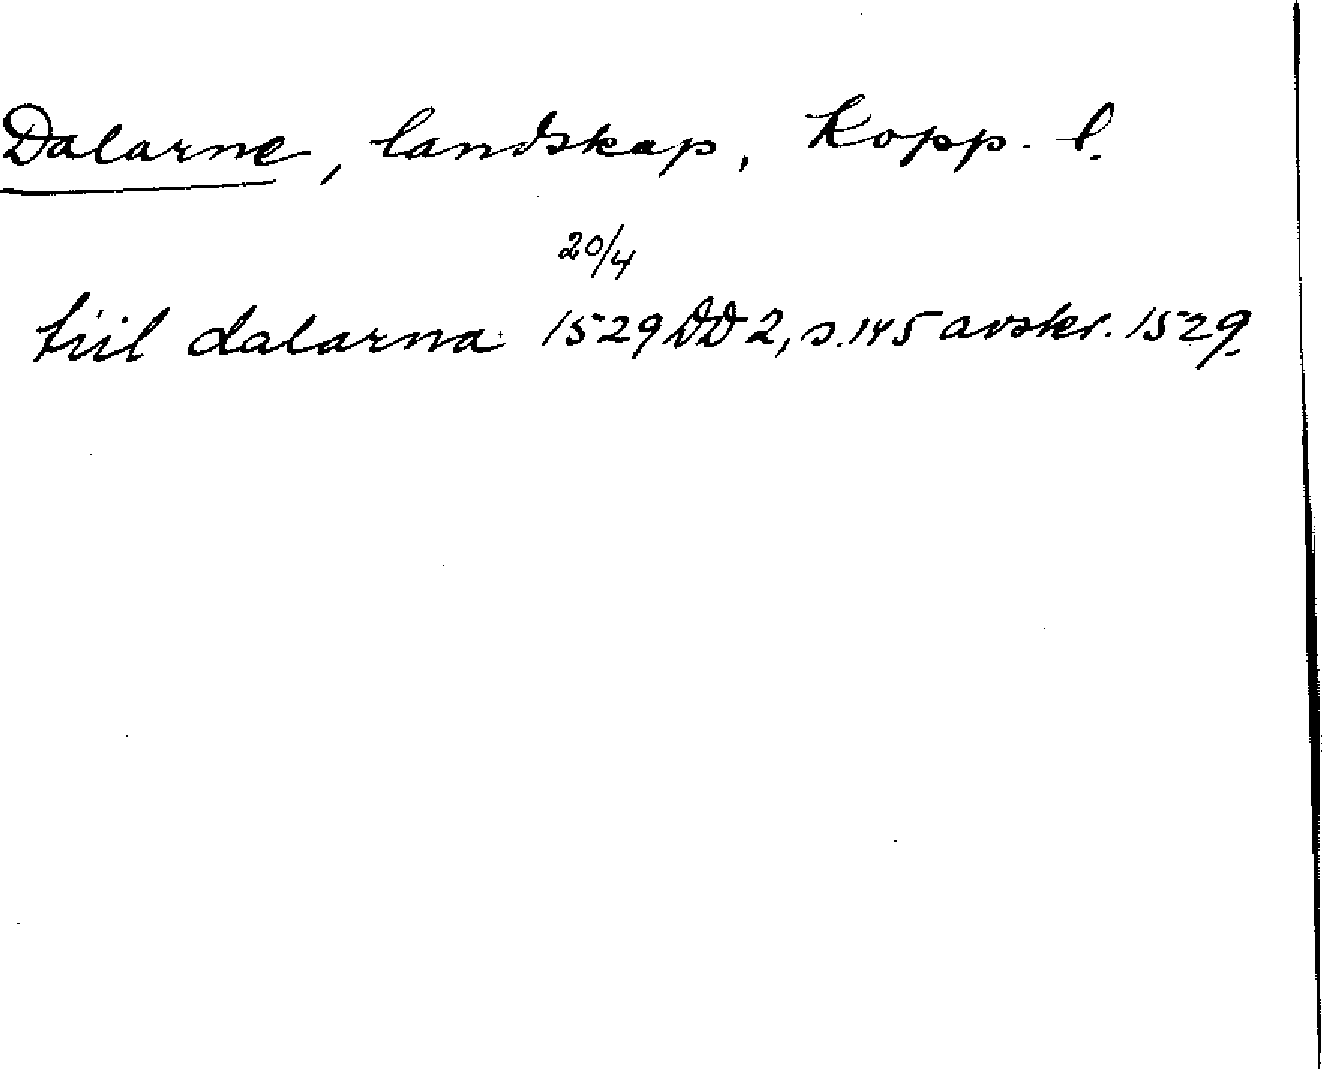 Dalarne, landskap, Kopp. l.
20/4
tiil dalarna 1529 DD 2, s. 145 avskr. 1529.